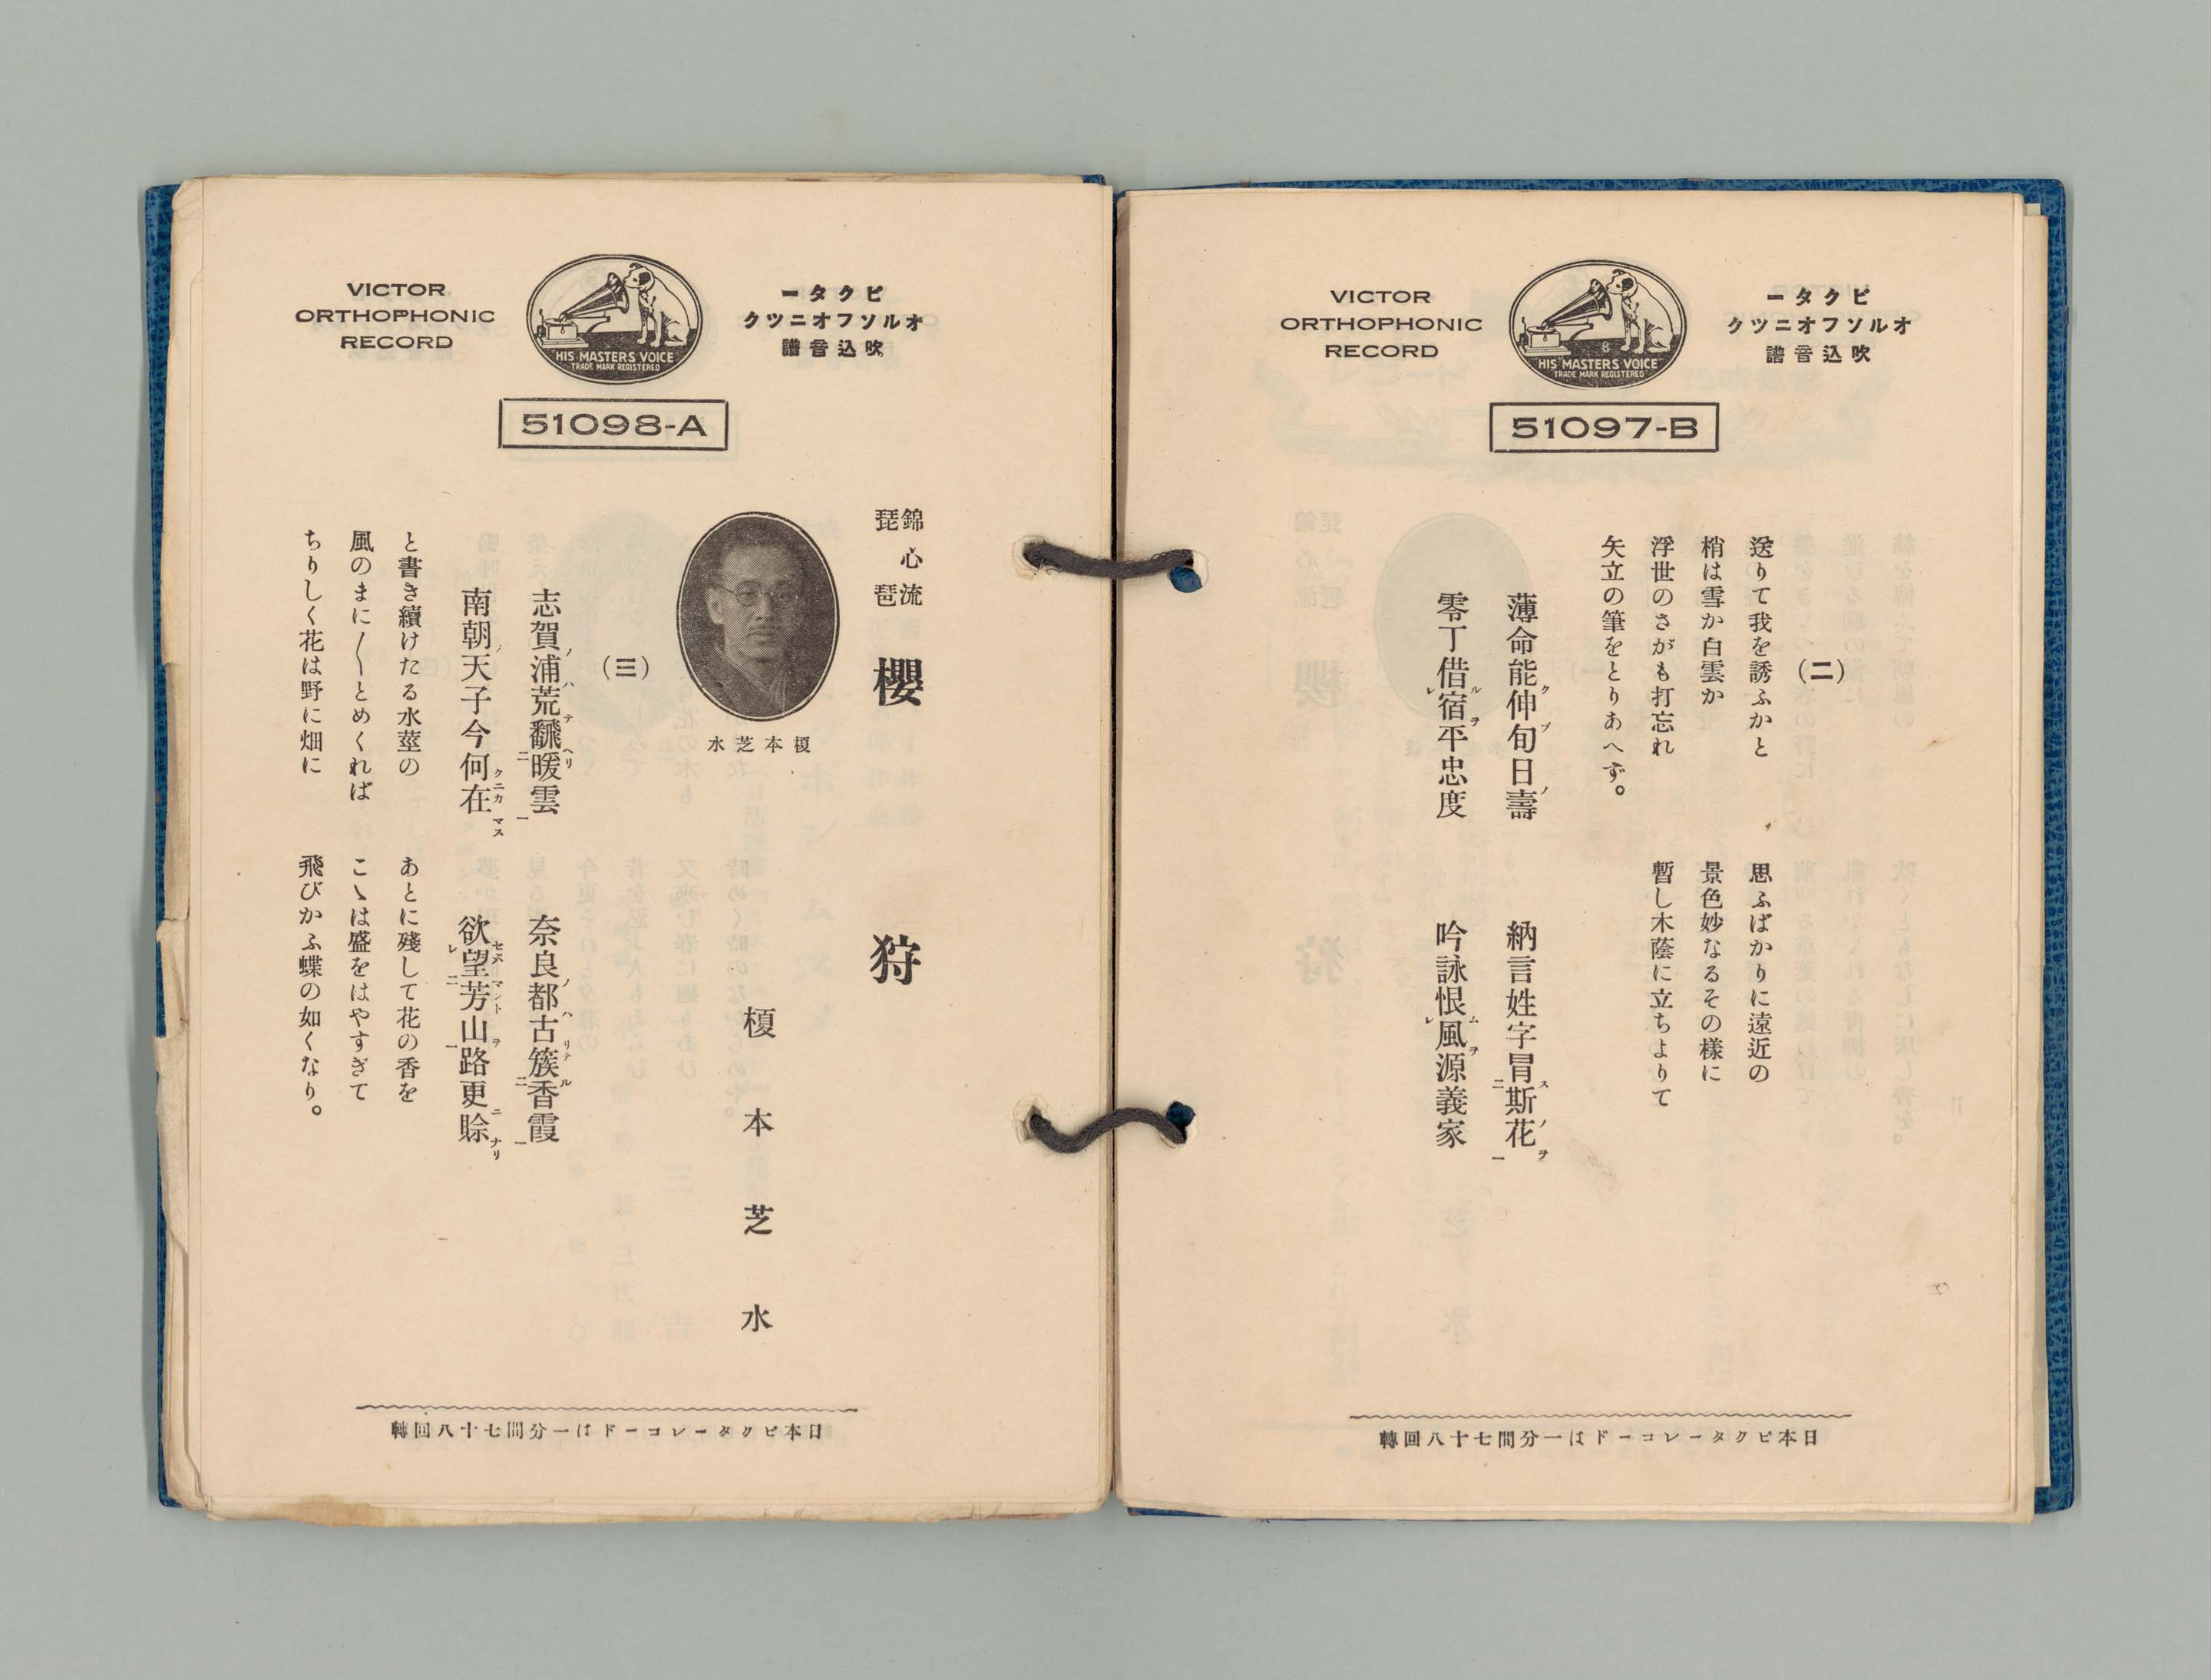 VICTOR
ORTHOPHONIC
RECORD
HIS MASTERS VOICE
TRADE MARK REGISTERED
ビクター
オルソフオニツク
吹込音譜
51097-B
(二)
送りて我を誘ふかと　思ふばかりに遠近の
梢は雪か白雲か　景色妙なるその様に
浮世のさがも打忘れ　暫し木蔭に立ちよりて
矢立の筆をとりあへず。
薄命能伸旬日壽　納言姓字冒斯花
零丁借宿平忠度　吟詠恨風源義家
日本ビクターレコードは一分間七十八回轉
VICTOR
ORTHOPHONIC
RECORD
HIS MASTERS VOICE
TRADE MARK REGISTERED
ビクター
オルソフオニツク
吹込音譜
51098-A
錦心流
琵琶
櫻狩
榎本芝水
榎本芝水
(三)
志賀浦荒飜暖雲　奈良都古簇香霞
南朝天子今何在　欲望芳山路更賒
と書き續けたる水莖の　あとに殘して花の香を
風のまに〳〵とめくれば　こゝは盛をはやすぎて
ちりしく花は野に畑に　飛びかふ蝶の如くなり。
日本ビクターレコードは一分間七十八回轉